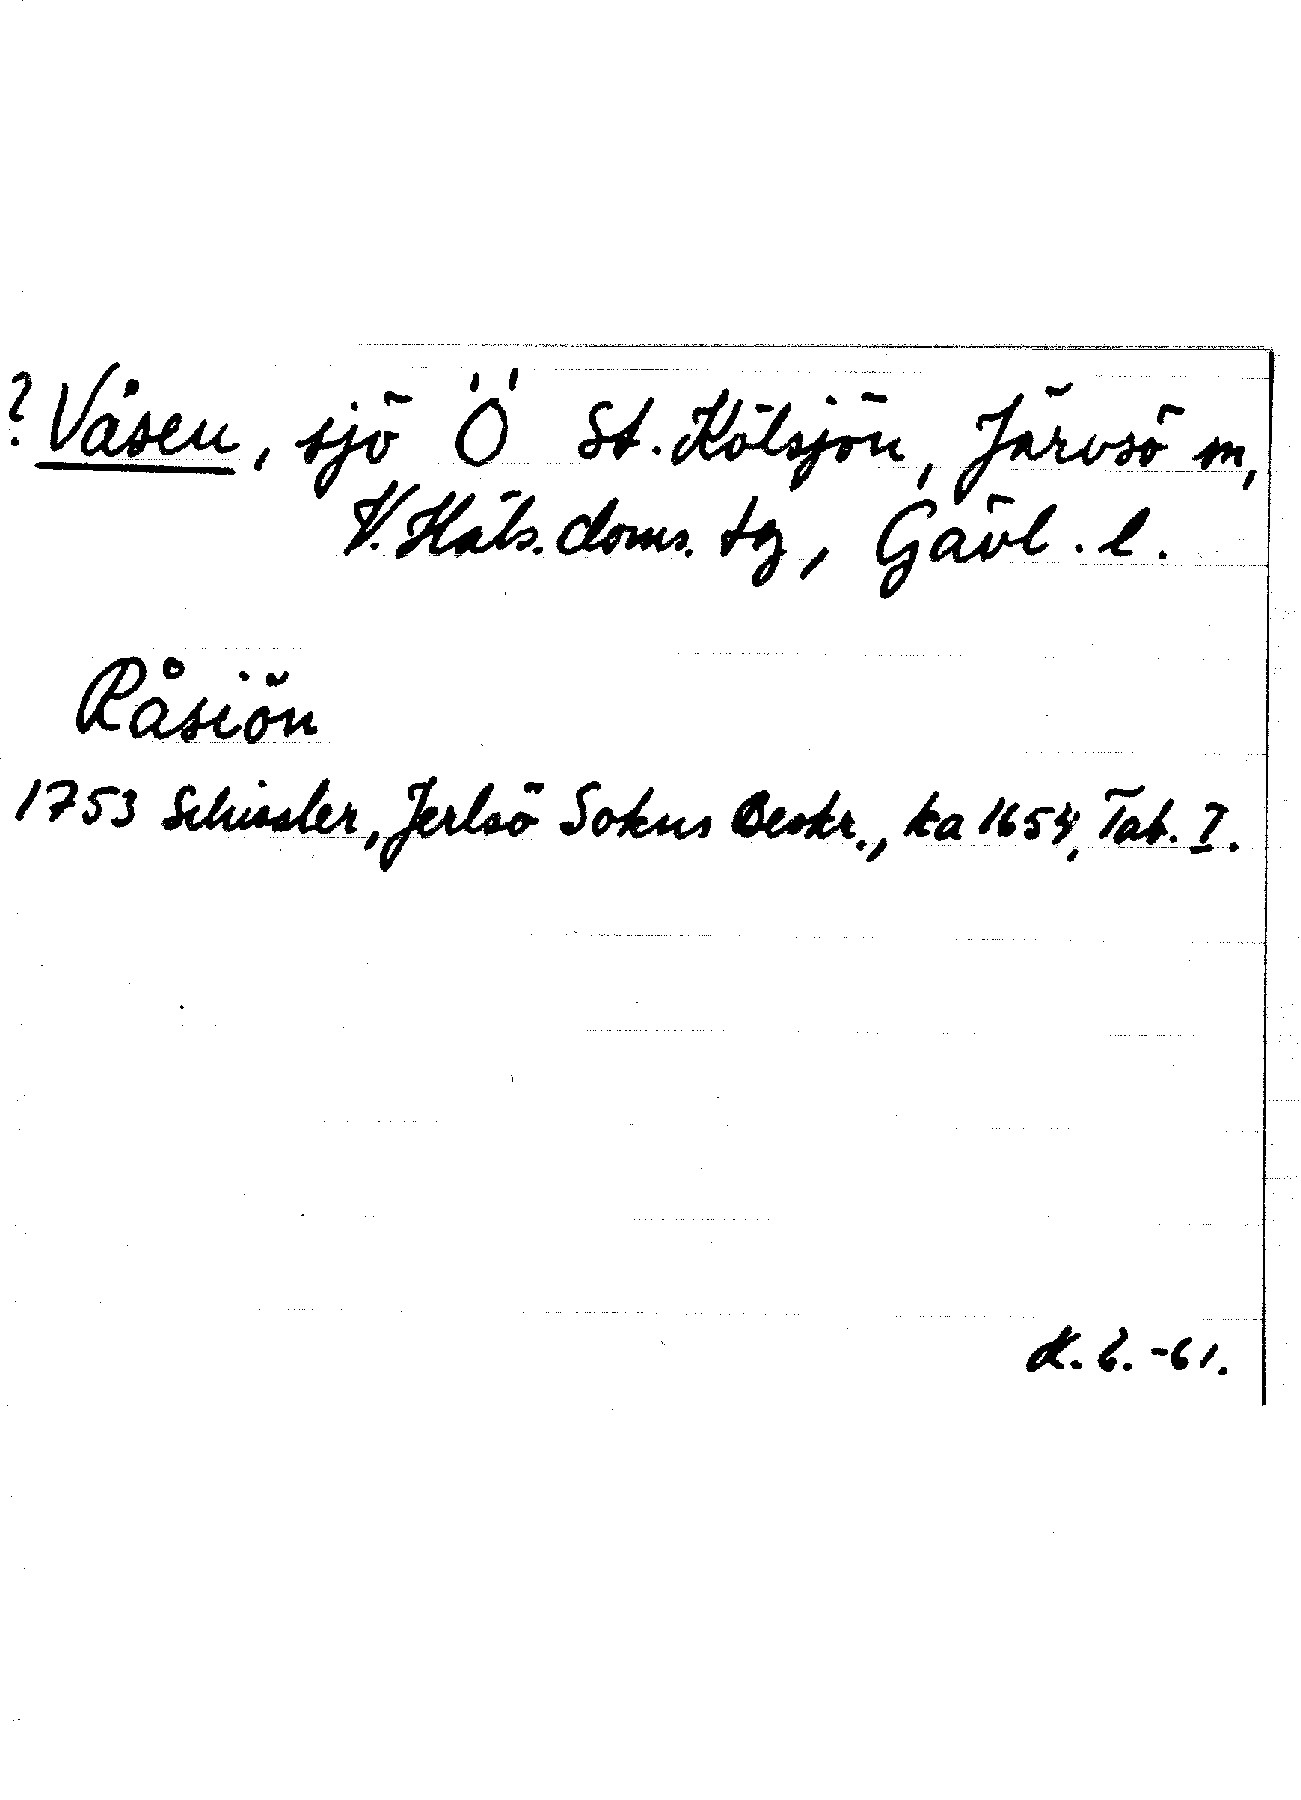 ? Våsen, sjö Ö St. Kölsjön, Järvsö sn,
V. Häls. doms. tg, Gävl. l.
Råsiön
1753 Schissler, Jerlsö Sokns Beskr., ka 1654, Tab. I.
K. E. -61.